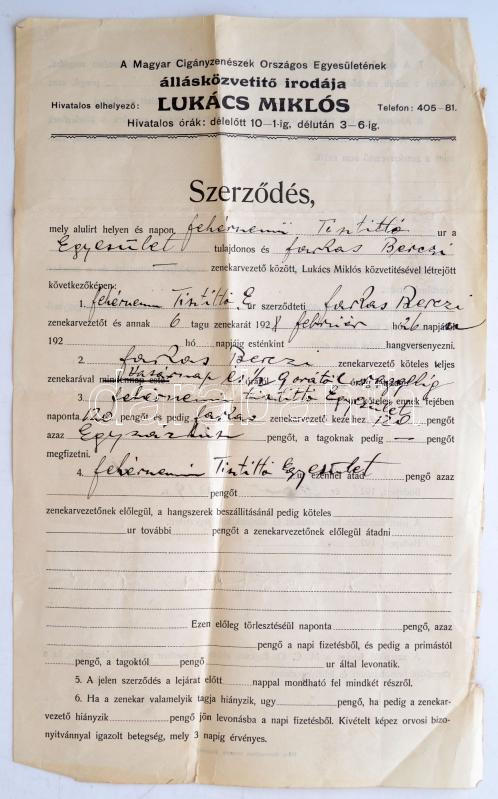 A Magyar Cigányzenészek Országos Egyesületének
állásközvetitő irodája
Hivatalos elhelyező: LUKÁCS MIKLÓS Telefon: 405–81.
Hivatalos órák: délelőtt 10–1-ig, délután 3–6-ig.
Szerződés,
mely alulirt helyen és napon fehérnemü Tisztitó ur a
Egyesület tulajdonos és farkas Berczi
— zenekarvezető között, Lukács Miklós közvetitésével létrejött
következőképen:
1. fehérnemü Tisztitó E ur szerződteti farkas Berczi
zenekarvezetőt és annak 6 tagu zenekarát 1928 február hó 26 napjá
192 hó napjáig esténkint hangversenyezni.
2. farkas Berczi zenekarvezető köteles teljes
zenekarával mindennap este Vasárnap este 9 órától reggelig
3. fehérnemü tisztitó Egyesület ur köteles ennek fejében
naponta 120 pengőt és pedig farkas zenekarvezető kezéhez 120 pengőt
azaz Egyszázhusz pengőt, a tagoknak pedig — pengőt
megfizetni.
4. fehérnemü Tisztitó Egyesület ur ezennel átad pengő azaz
pengőt
zenekarvezetőnek előlegül, a hangszerek beszállitásánál pedig köteles
ur további pengőt a zenekarvezetőnek előlegül átadni
Ezen előleg törlesztéséül naponta pengő, azaz
pengő a napi fizetésből, és pedig a primástól
pengő, a tagoktól pengő ur által levonatik.
5. A jelen szerződés a lejárat előtt nappal mondható fel mindkét részről.
6. Ha a zenekar valamelyik tagja hiányzik, ugy pengő, ha pedig a zenekar-
vezető hiányzik pengő jön levonásba a napi fizetésből. Kivételt képez orvosi bizo-
nyitvánnyal igazolt betegség, mely 3 napig érvényes.
darabanth